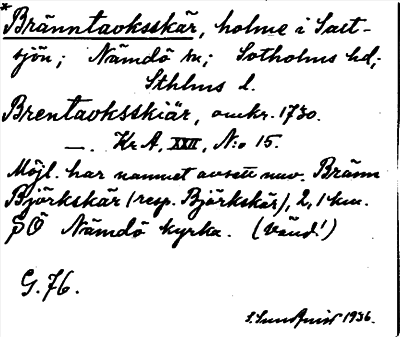 *Bränntaoksskär, holme i Salt-
sjön; Nämdö sn; Sotholms hd;
Sthlms l.
Brentaoksskiär, omkr. 1730.
—. Kr A, XXII, N:o 15.
Möjl. har namnet avsett nuv. Bränn
Björkskär (resp. Björkskär), 2,1 km.
SÖ Nämdö kyrka. (Vänd!)
G. 76.
S. Sundqvist 1936.